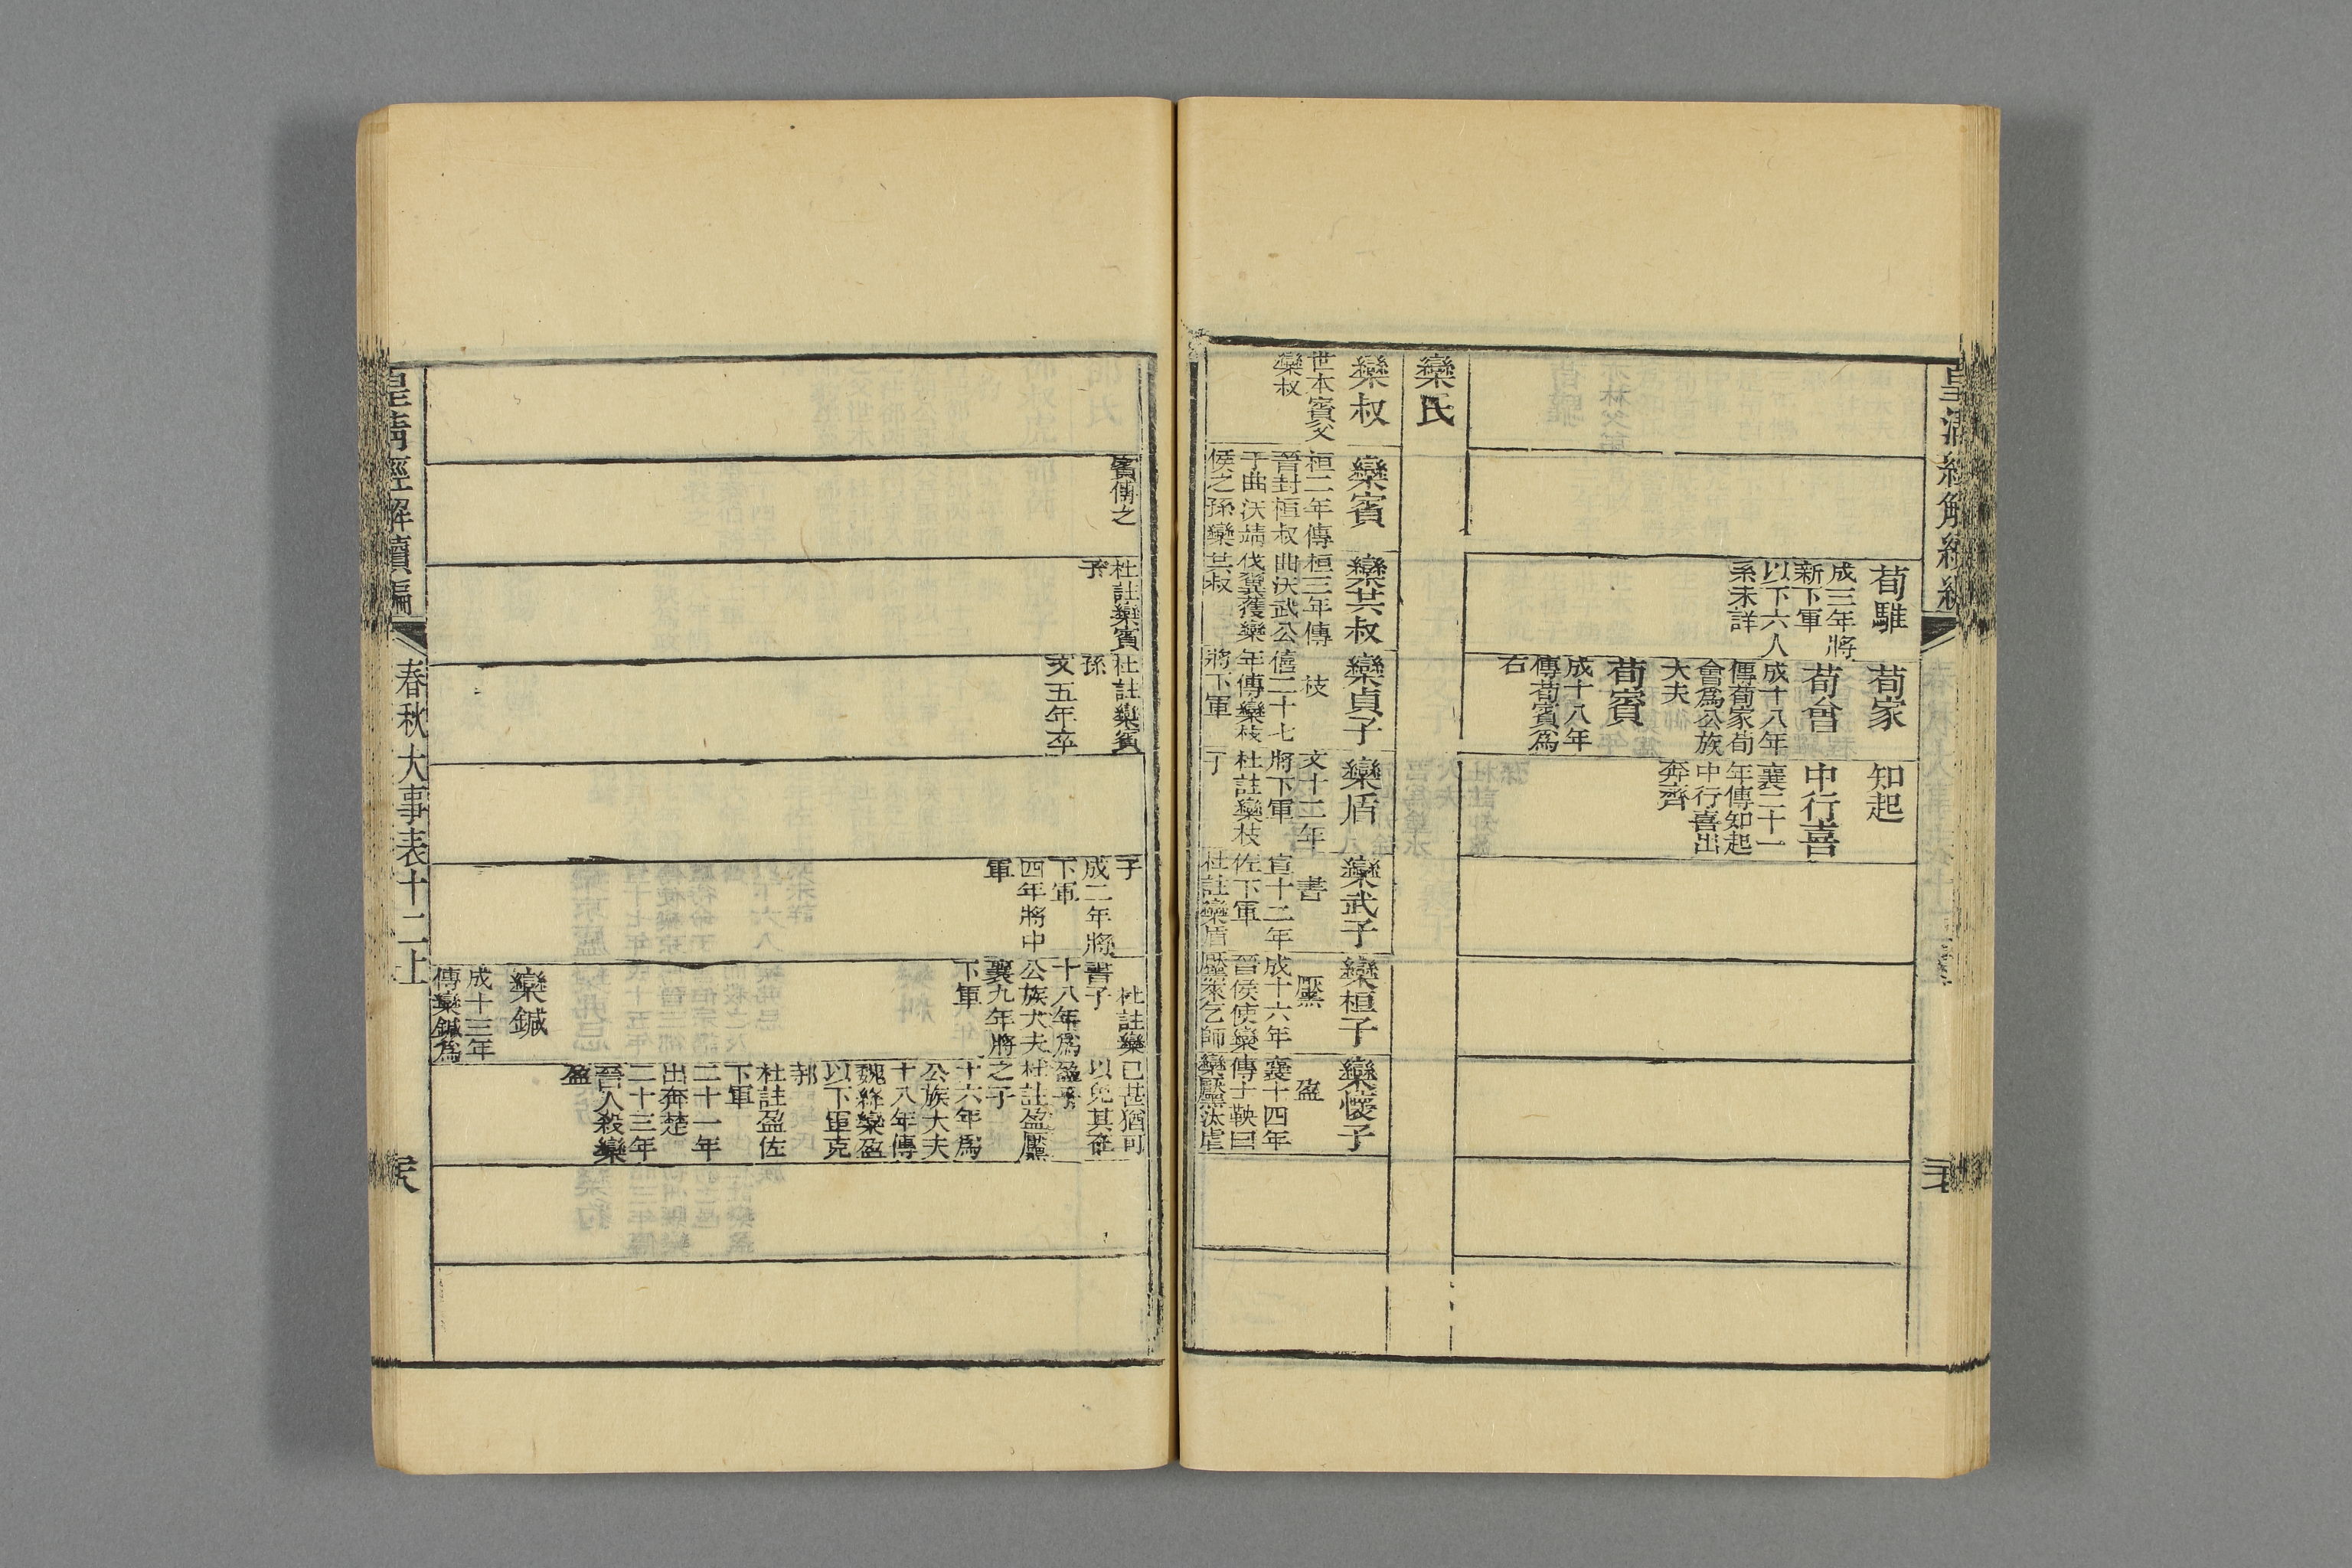 荀騅
成三年將
新下軍
以下六人
系未詳
荀家
荀會
成十八年
傳荀家荀
會爲公族
大夫
荀賓
成十八年
傳荀賓爲
右
知起
中行喜
襄二十一
年傳知起
中行喜出
奔齊
欒氏
欒叔
世本賓父
欒叔
欒賓
桓二年傳
晉封桓叔
于曲沃靖
侯之孫欒
欒共叔
桓三年傳
曲沃武公
伐翼獲欒
共叔
欒貞子
枝
僖二十七
年傳欒枝
將下軍
欒盾
文十二年
將下軍
杜註欒枝
子
欒武子
書
宣十二年
佐下軍
杜註欒盾
欒桓子
黶
成十六年
晉侯使欒
黶來乞師
欒懷子
盈
襄十四年
傳士鞅曰
欒黶汰虐
賓傅之
杜註欒賓
子
杜註欒賓
孫
文五年卒
子
成二年將
下軍
四年將中
軍
杜註欒
書子
十八年爲
公族大夫
襄九年將
下軍
欒鍼
成十三年
傳欒鍼爲
已甚猶可
以免其在
盈乎
杜註盈黶
之子
十六年爲
公族大夫
十八年傳
魏絳欒盈
以下軍克
邿
杜註盈佐
下軍
二十一年
出奔楚
二十三年
晉人殺欒
盈
皇清經解續編
春秋大事表十二上